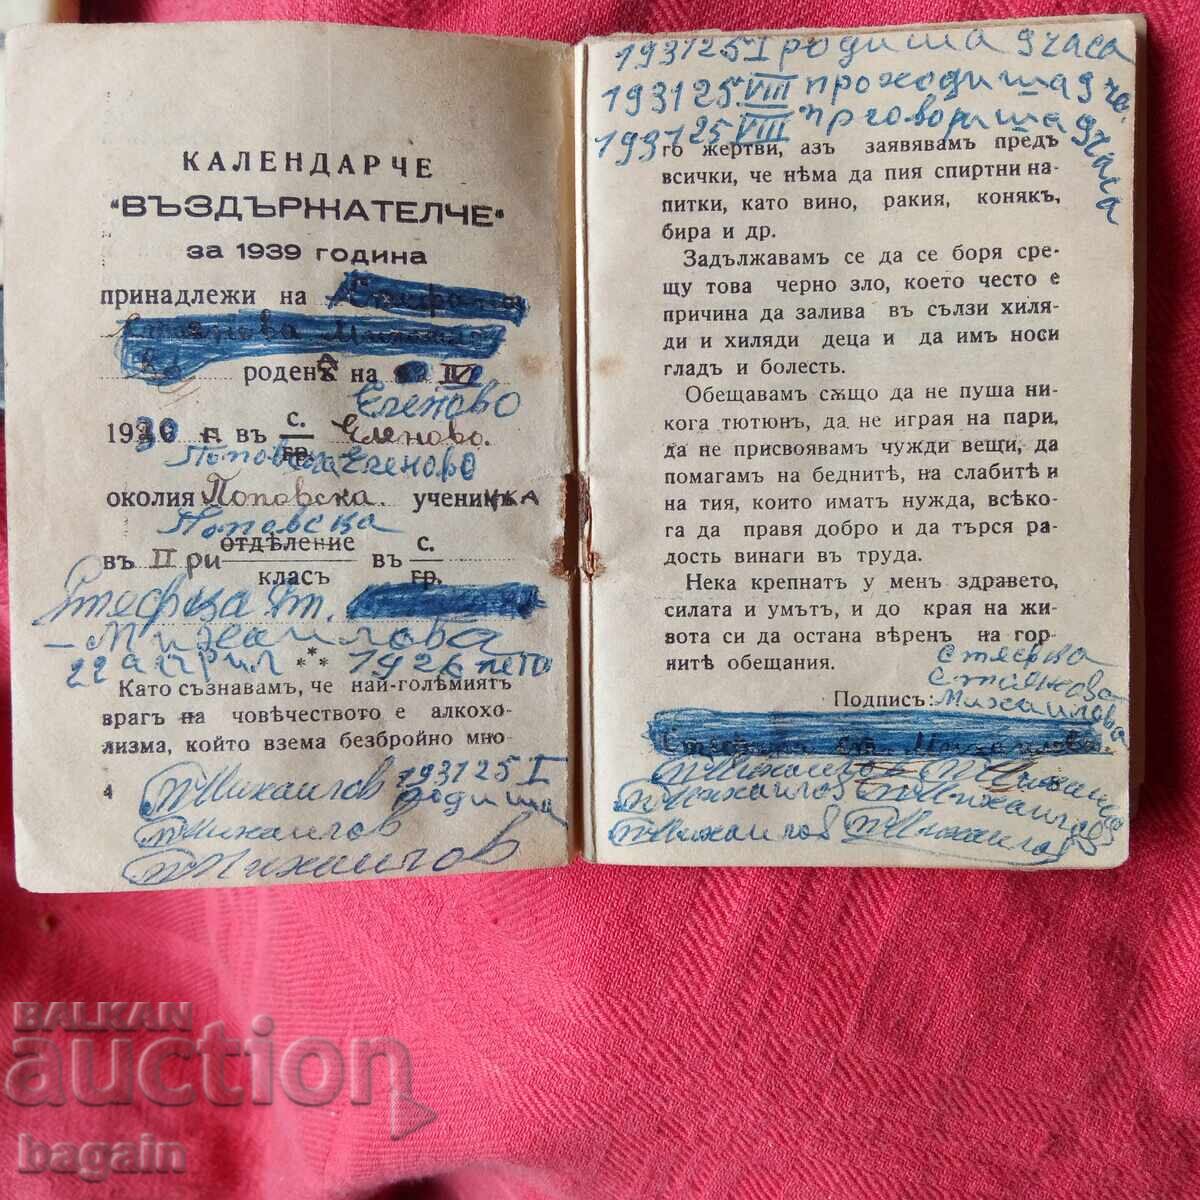 КАЛЕНДАРЧЕ
"ВЪЗДЪРЖАТЕЛЧЕ"
за 1939 година
принадлежи на
роден на IV
Еленово
19 г. въ с./гр. Еленово.
Поповска Еленово
околия Поповска. ученичка
Поповска
въ II при отдѣление/класъ въ с./гр.
Стефка Ст.
- Михаилова
22 април *** 1926 лето
Като съзнавамъ, че най-голѣмиятъ
врагъ на човѣчеството е алкохо-
лизма, който взема безбройно мно-
Михаилов 1931 25 I
4 родиша
Михаилов
Михаилов
1931 25 I родиша 9 часа
1931 25 VIII проходиша 9 ча.
1931 25 VIII прговориша 9 часа
го жертви, азъ заявявамъ предъ
всички, че нѣма да пия спиртни на-
питки, като вино, ракия, конякъ,
бира и др.
Задължавамъ се да се боря сре-
щу това черно зло, което често е
причина да залива въ сълзи хиля-
ди и хиляди деца и да имъ носи
гладъ и болесть.
Обещавамъ сѫщо да не пуша ни-
кога тютюнъ, да не играя на пари,
да не присвоявамъ чужди вещи, да
помагамъ на беднитѣ, на слабитѣ и
на тия, които иматъ нужда, всѣко-
га да правя добро и да търся ра-
дость винаги въ труда.
Нека крепнатъ у менъ здравето,
силата и умътъ, и до края на жи-
вота си да остана вѣренъ на гор-
нитѣ обещания.
Стефка
Стоянова
Подписъ: Михаилова
Ст. Михаилова.
Михаилов
Михаилов Михаилов
Михаилов Михаилов
BALKAN
auction
bagain